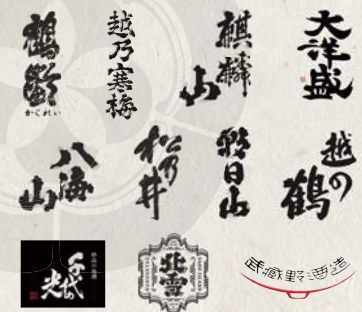 鶴齢
かくれい
越乃寒梅
麒麟山
大洋盛
八海山
松乃井
朝日山
越の鶴
千代の光
北雪
武蔵野酒造